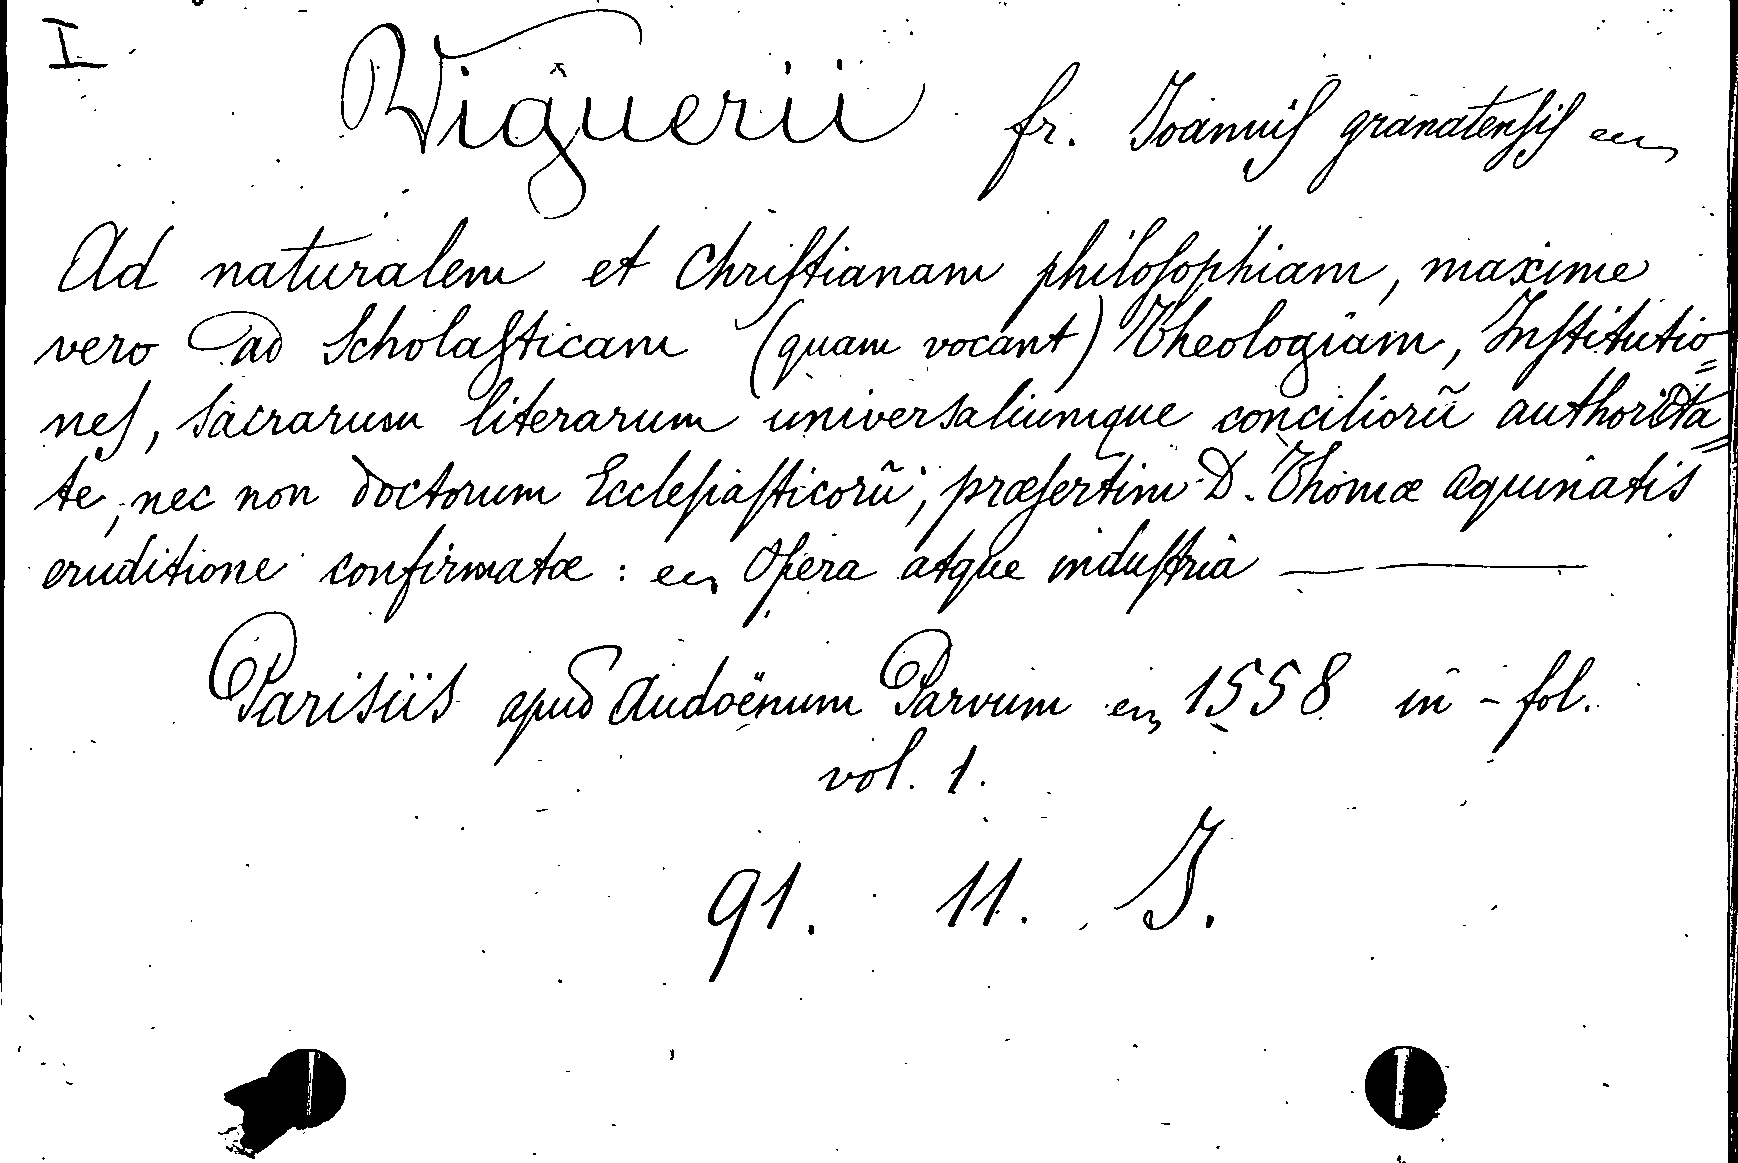 I
Viguerii fr. Joannis granatensis
Ad naturalem et Christianam philosophiam, maxime
vero ad Scholasticam (quam vocant) Theologiam, Institutio=
nes, sacrarum literarum universaliumque conciliorũ authorita=
te, nec non doctorum Ecclesiasticorũ, præsertim D. Thomæ Aquinatis
eruditione confirmatæ: opera atque industria —
Parisiis apud Audoënum Parvum 1558 in-fol.
vol. 1.
91. 11. J.